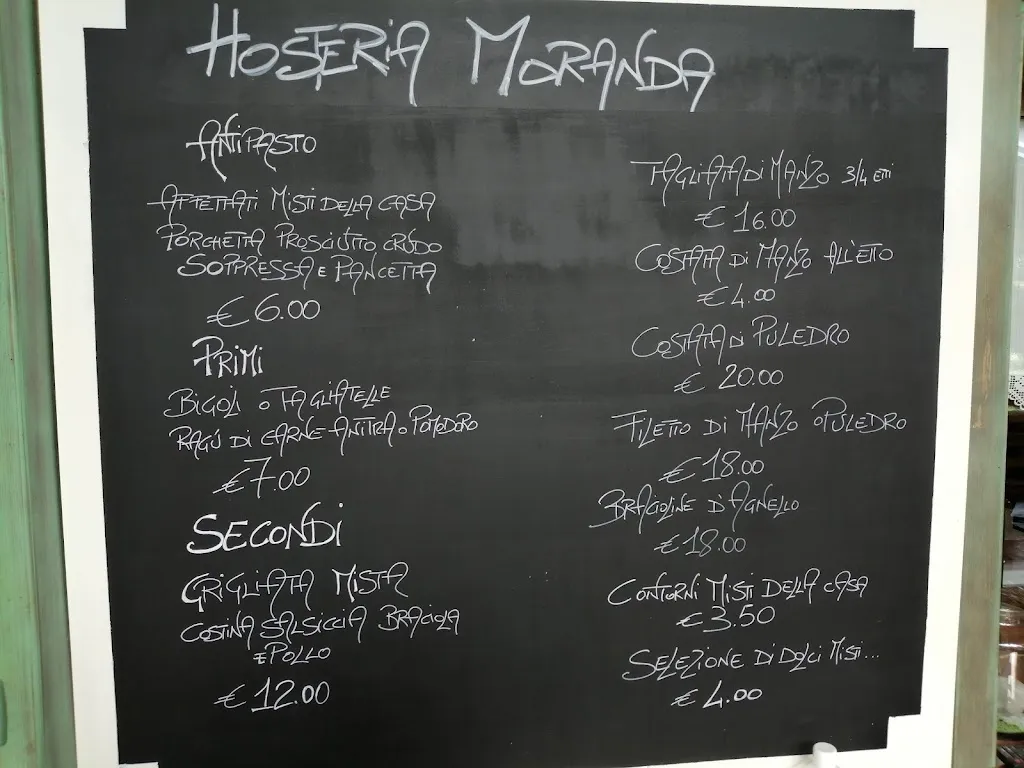 HOSTERIA MORANDA
ANTIPASTO
AFFETTATI MISTI DELLA CASA
PORCHETTA PROSCIUTTO CRUDO
SOPPRESSA E PANCETTA
€ 6.00
PRIMI
BIGOLI O TAGLIATELLE
RAGÚ DI CARNE ANITRA O POMODORO
€ 7.00
SECONDI
GRIGLIATA MISTA
COSTINA SALSICCIA BRACIOLA
E POLLO
€ 12.00
TAGLIATA DI MANZO 3/4 ETTI
€ 16.00
COSTATA DI MANZO ALL'ETTO
€ 4.00
COSTATA DI PULEDRO
€ 20.00
FILETTO DI MANZO O PULEDRO
€ 18.00
BRACIOLINE D'AGNELLO
€ 18.00
CONTORNI MISTI DELLA CASA
€ 3.50
SELEZIONE DI DOLCI MISTI...
€ 4.00